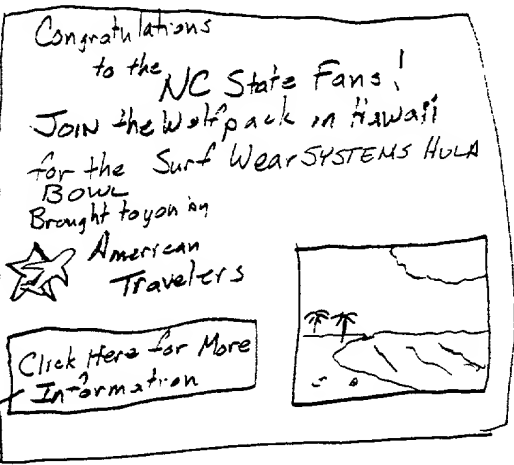 Congratulations
to the
NC State Fans!
JOIN the Wolfpack in Hawaii
for the Surf Wear SYSTEMS HULA
BOWL
Brought to you by
American
Travelers
Click Here for More
Information